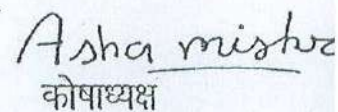 Asha mishr
कोषाध्यक्ष